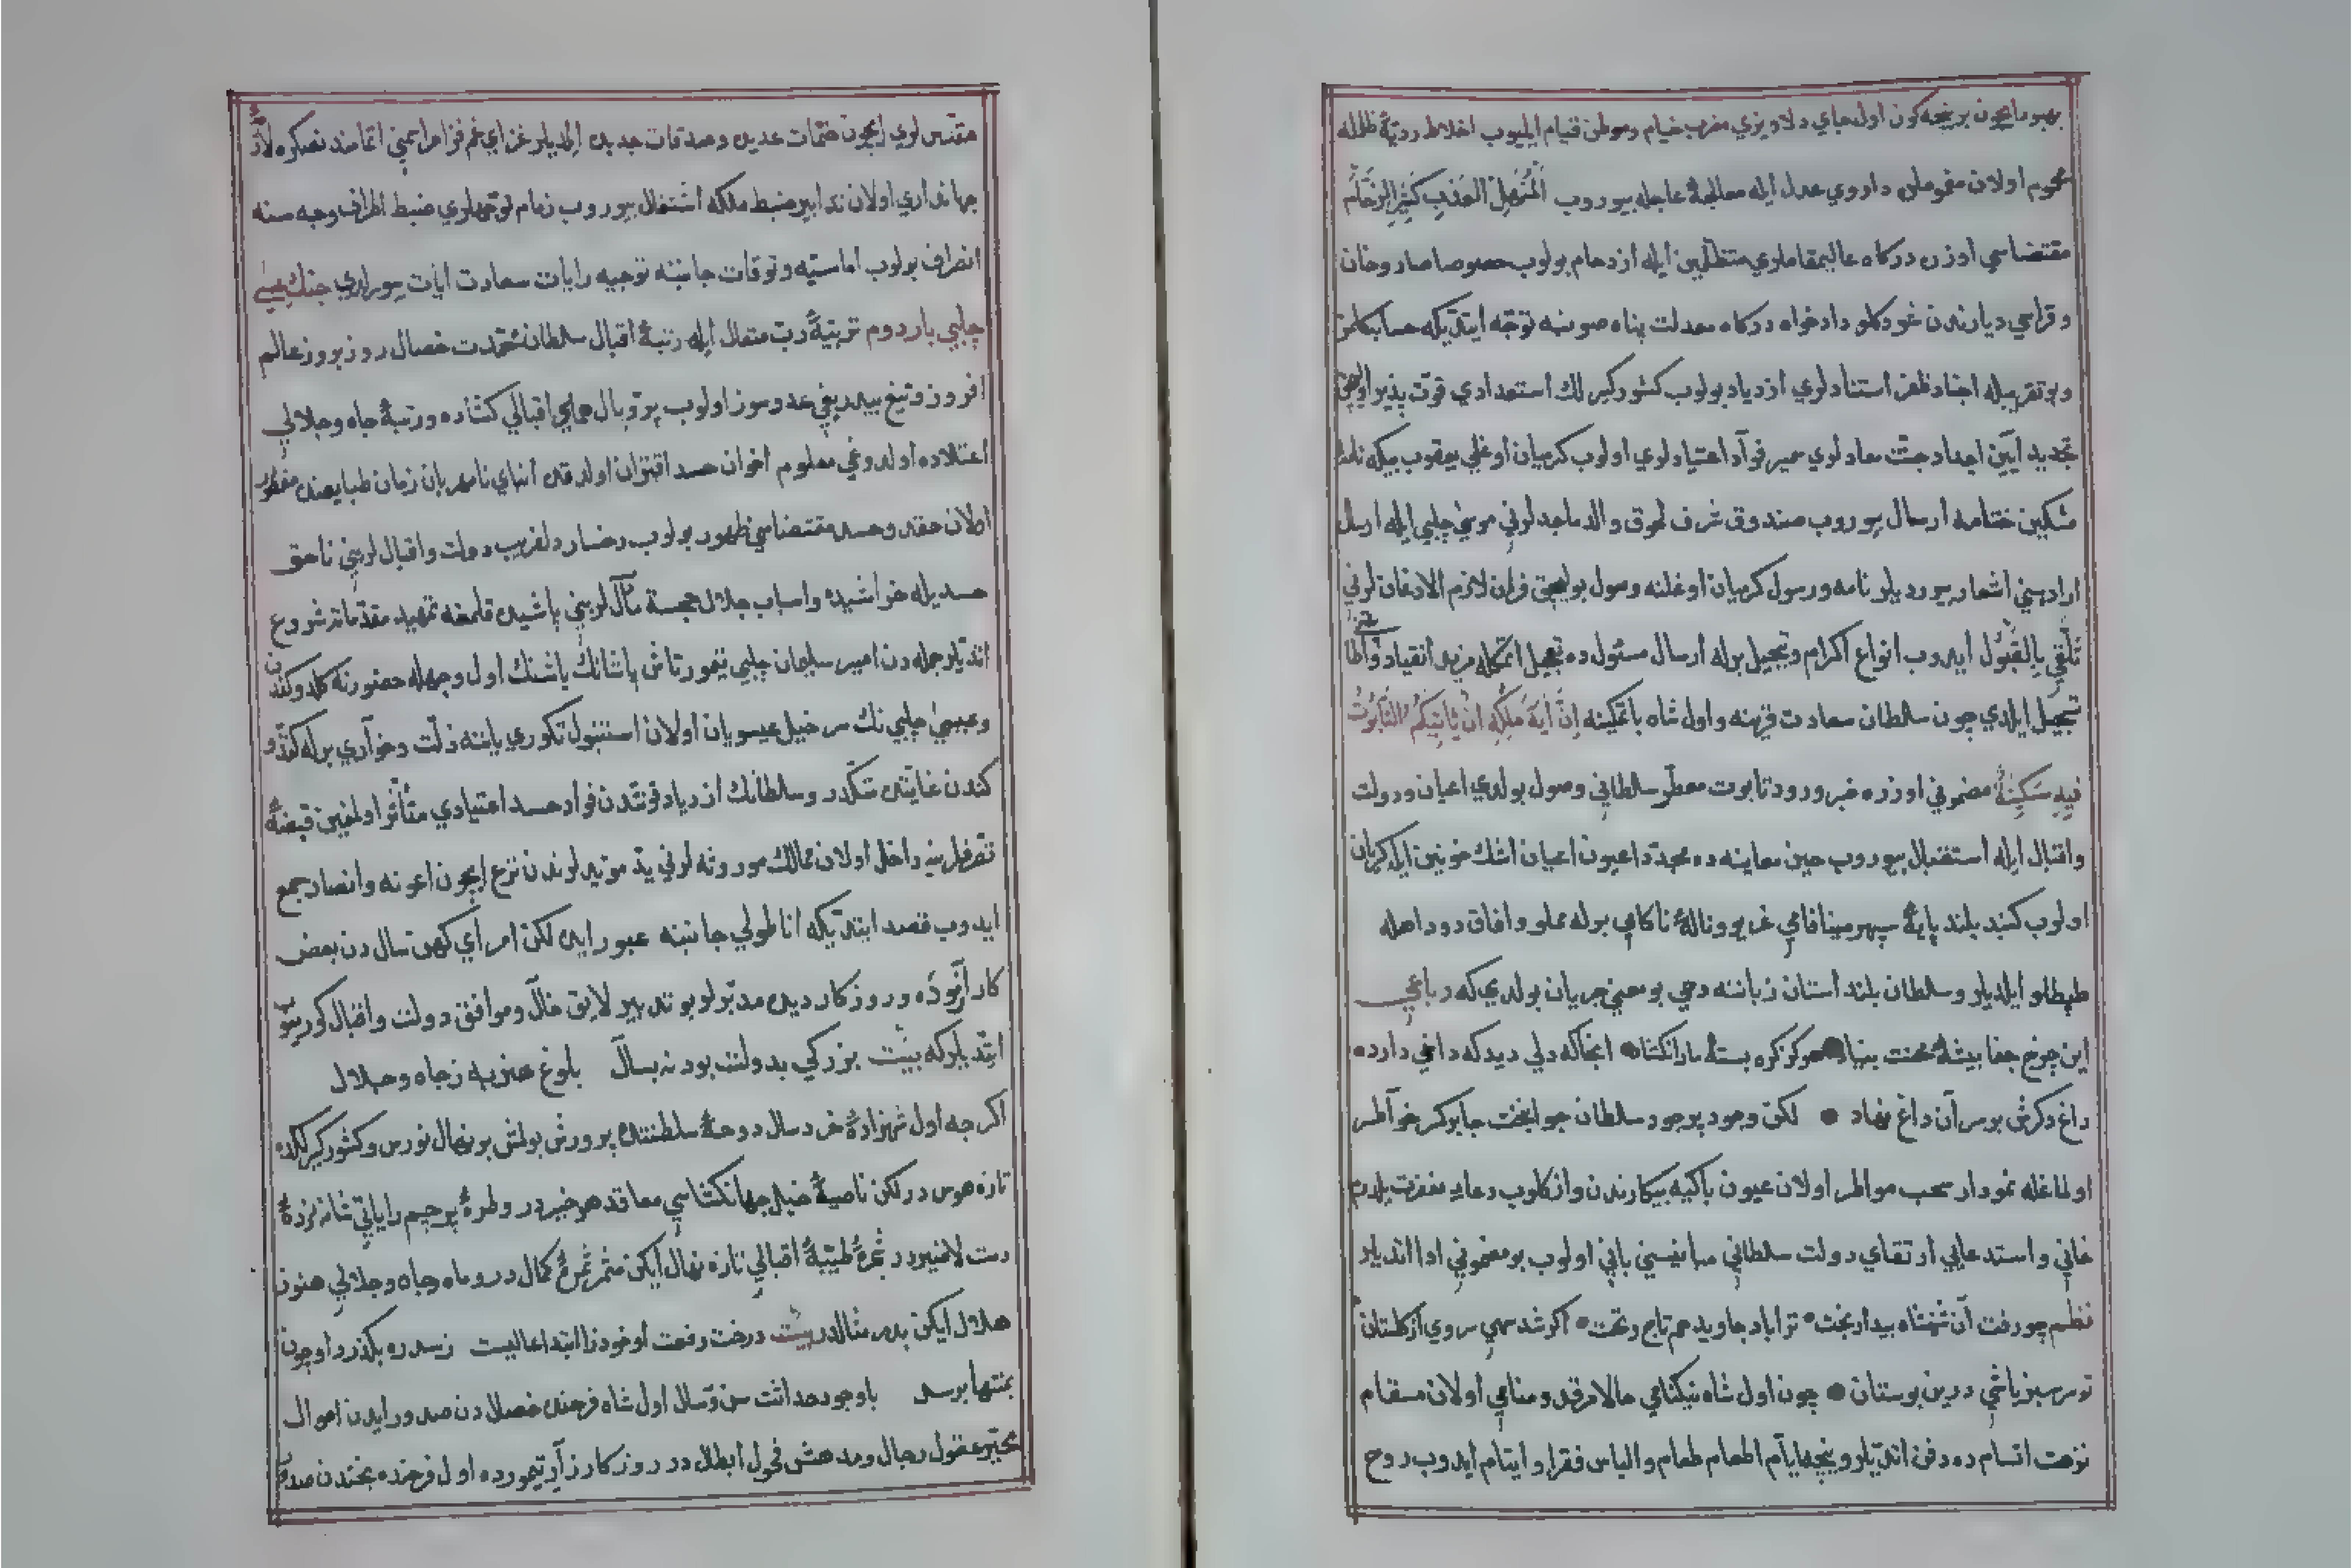 بهبود ايچون برنيجه كون اول جاي دلاويزي مضرب خيام وموطن قيام ايليوب اخلاط رديهٔ ظلمله
محموم اولان مظلوملرى داروي عدل ايله معالجهٔ عاجله بيوروب اَلْمَنْهَلُ الْعَذْبُ كَثِيرُ الزِّحَامِ
مقتضاسي اوزره دركاه عاليمقاملري متظلّمين ايله ازدحام بولوب خصوصا صاروخان
وقراسي ديارندن دادخواه دركاه معدلت پناه صوبنه توجّه ايتديكه حسابه كلمز
وبو تقريبله اجناد ظفر استنادلري ازدياد بولوب كشوركيرلك استعدادي قوّت پذير اوليجق
تجديد آيين اجداد جنّت معادلري ضمير فوآد اعتيادلري اولوب كرميان اوغلي يعقوب بيكه نامهٔ
مشكين ختامه ارسال بيوروب صندوق شرف لحوق والد ماجدلرني موسي چلبي ايله ارسال
ارادەسني اشعار بيورديلر نامه ورسول كرميان اوغلنه وصول بوليجق فرمان لازم الاذعانلرني
تلقّي بالقبول ايدوب انواع اكرام وتبجيل برله ارسال مسئولده تعجيل اتمكله مزيد انقياد واطاعتني
تسجيل ايلدي چون سلطان سعادت قرينه واول شاه باتمكينه إِنَّ آيَةَ مُلْكِهِ أَنْ يَأْتِيَكُمُ التَّابُوتُ
فِيهِ سَكِينَةٌ مضموني اوزره خبر ورود تابوت معطّر سلطاني وصول بولدي اعيان ودولت
واقبال ايله استقبال بيوروب حين معاينه ده مجدّدا عيون اعيان اشك خونين ايله كريان
اولوب كنبد بلند پايهٔ سپهر مينافامي غريو ونالهٔ ناكامي برله مملو وافاق دود اهله
طپطلو ايلديلر وسلطان بلند استان زباننه دخي بو معني جريان بولدي كه رباعي
اين چرخ جفا پيشهٔ محنت بنياد هركز كره بستهٔ ما را نكشاد انجا كه دلي ديد كه داغي دارد
داغ دكرش بر سر آن داغ نهاد لكن وجود پرجود سلطان جوانبخت جابر كسر خواطر
اولماغله نمودار سحب مواطر اولان عيون باكيه بيكارندن واز كلوب دعاي مغفرت پدرم
خاني واستدعايي ارتقاي دولت سلطاني مباني‌سني باني اولوب بو مضموني ادا اتديلر
نظم چو رفت آن شهنشاه بيدار بخت ترا باد جاويد هم تاج وتخت اكر شد سهي سروي از كلستان
تو سرسبز باشي درين بوستان چون اول شاه نيكنامي حالا مرقد ومنامي اولان مقام
نزهت اتسامده دفن اتديلر ونيچه ايام اطعام طعام والباس فقرا وايتام ايدوب روح
مقدّس‌لري ايچون ختمات عديده وصدقات جديده ايلديلر عزاي غم فزا مراسمني اتمامدنصكره لازمهٔ
جهانداري اولان تدابير ضبط ملكه اشتغال بيوروب زمام توجّهلري ضبط اطراف وجهه‌سنه
انصراف بولوب اماسيّه وتوقات جانبنه توجيه رايات سعادت آيات بيورلدي جنك عيسي
چلبي بار دوم تربيهٔ ربّ متعال ايله رتبهٔ اقبال سلطان محمّدت خصال روز بروز عالم
افروز وتيغ بيدريغي عدوسوز اولوب پر وبال هماي اقبالي كشاده ورتبهٔ جاه وجلالي
اعتلاده اولدوغي معلوم اخوان حسد اقتران اولدقده ابناي نامهربان زمان طبايعنده مفطور
اولان حقد وحسد مقتضاسي ظهور بولوب رخسار دلفريب دولت واقبال‌لريني ناحق
حسديله خراشيده واسباب جلال خجسته مآل‌لريني پاشيده قلمغه تمهيد مقدّماته شروع
اتديلر جمله دن امير سليمان چلبي تيمورتاش پاشانك باشنك اول وجهله حضورنه كلدوكندن
وعيسي چلبي نك سرخيل عيسويان اولان استنبول تكوري ياننه ذلّت وخواري برله كتدو
كندن غايتده متكدّر وسلطانك ازدياد قوّتندن فواد حسد اعتيادي متأثّر اولمغين قبضهٔ
تصرفلرينه داخل اولان ممالك موروثه‌لرني يد مؤيّدلرندن نزع ايچون اعونه وانصار جمع
ايدوب قصد ايتديكه اناطولي جانبنه عبور ايده لكن امراي كهن سالدن بعض
كار آزموده وروزكار ديده مدبّرلر بو تدبير لايق حال وموافق دولت واقبال كورميوب
ايتديلر كه بيت بزركي بدولت بود نه بسال بلوغ هنر به زجاه وجلال
اكرچه اول شهزادهٔ خردسال دوحهٔ سلطنتده پرورش بولمش بر نهال نورس وكشوركيرلكده
تازه هوسدر لكن ناصيهٔ خيل جهانكشاسي معاقد هر خيردر وطرهٔ پرچم راياتي شانه زدهٔ
دست لاضيردر شجرهٔ طيّبهٔ اقبالي تازه نهال ايكن مثمر ثمرهٔ كمالدر وماه جاه وجلالي هنوز
هلال ايكن بدر مثالدر بيت درخت رفعت او خود زابتدا عاليست زسدره بكذرد او چون
بمنتها برسد باوجود حداثت سنّ وسال اول شاه فرخنده خصالدن صدور ايدن احوال
محيّر عقول رجال ومدهش فحول ابطالدر روز كارزار تيمورده اول فرخنده بختدن صدور